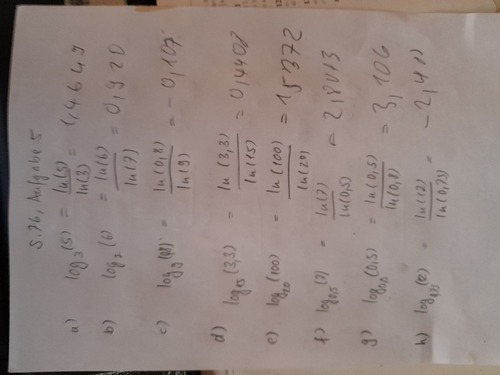 S.76, Aufgabe 5
a) log₃(5) = ln(5)/ln(3) = 1,4649
b) log₇(6) = ln(6)/ln(7) = 0,920
c) log₉(0,8) = ln(0,8)/ln(9) = -0,107
d) log₁₅(3,3) = ln(3,3)/ln(15) = 0,4408
e) log₂₀(100) = ln(100)/ln(20) = 1,5372
f) log₀,₅(7) = ln(7)/ln(0,5) = 2,8073
g) log₀,₈(0,5) = ln(0,5)/ln(0,8) = 3,106
h) ln(12)/ln(0,75) =